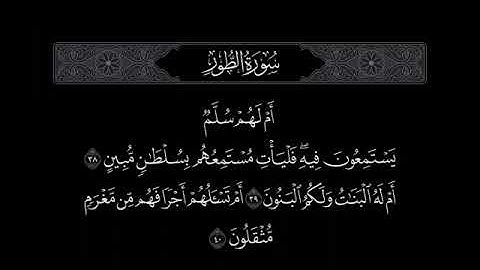 سُورَةُ الطُّورِ
أَمْ لَهُمْ سُلَّمٌ
يَسْتَمِعُونَ فِيهِ ۖ فَلْيَأْتِ مُسْتَمِعُهُم بِسُلْطَانٍ مُّبِينٍ ٣٨
أَمْ لَهُ الْبَنَاتُ وَلَكُمُ الْبَنُونَ ٣٩ أَمْ تَسْأَلُهُمْ أَجْرًا فَهُم مِّن مَّغْرَمٍ
مُّثْقَلُونَ ٤٠